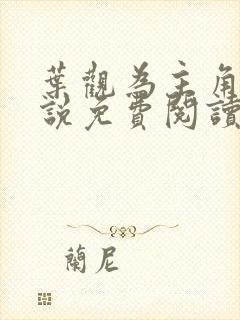 葉觀為主角
說免費閱讀
蘭尼